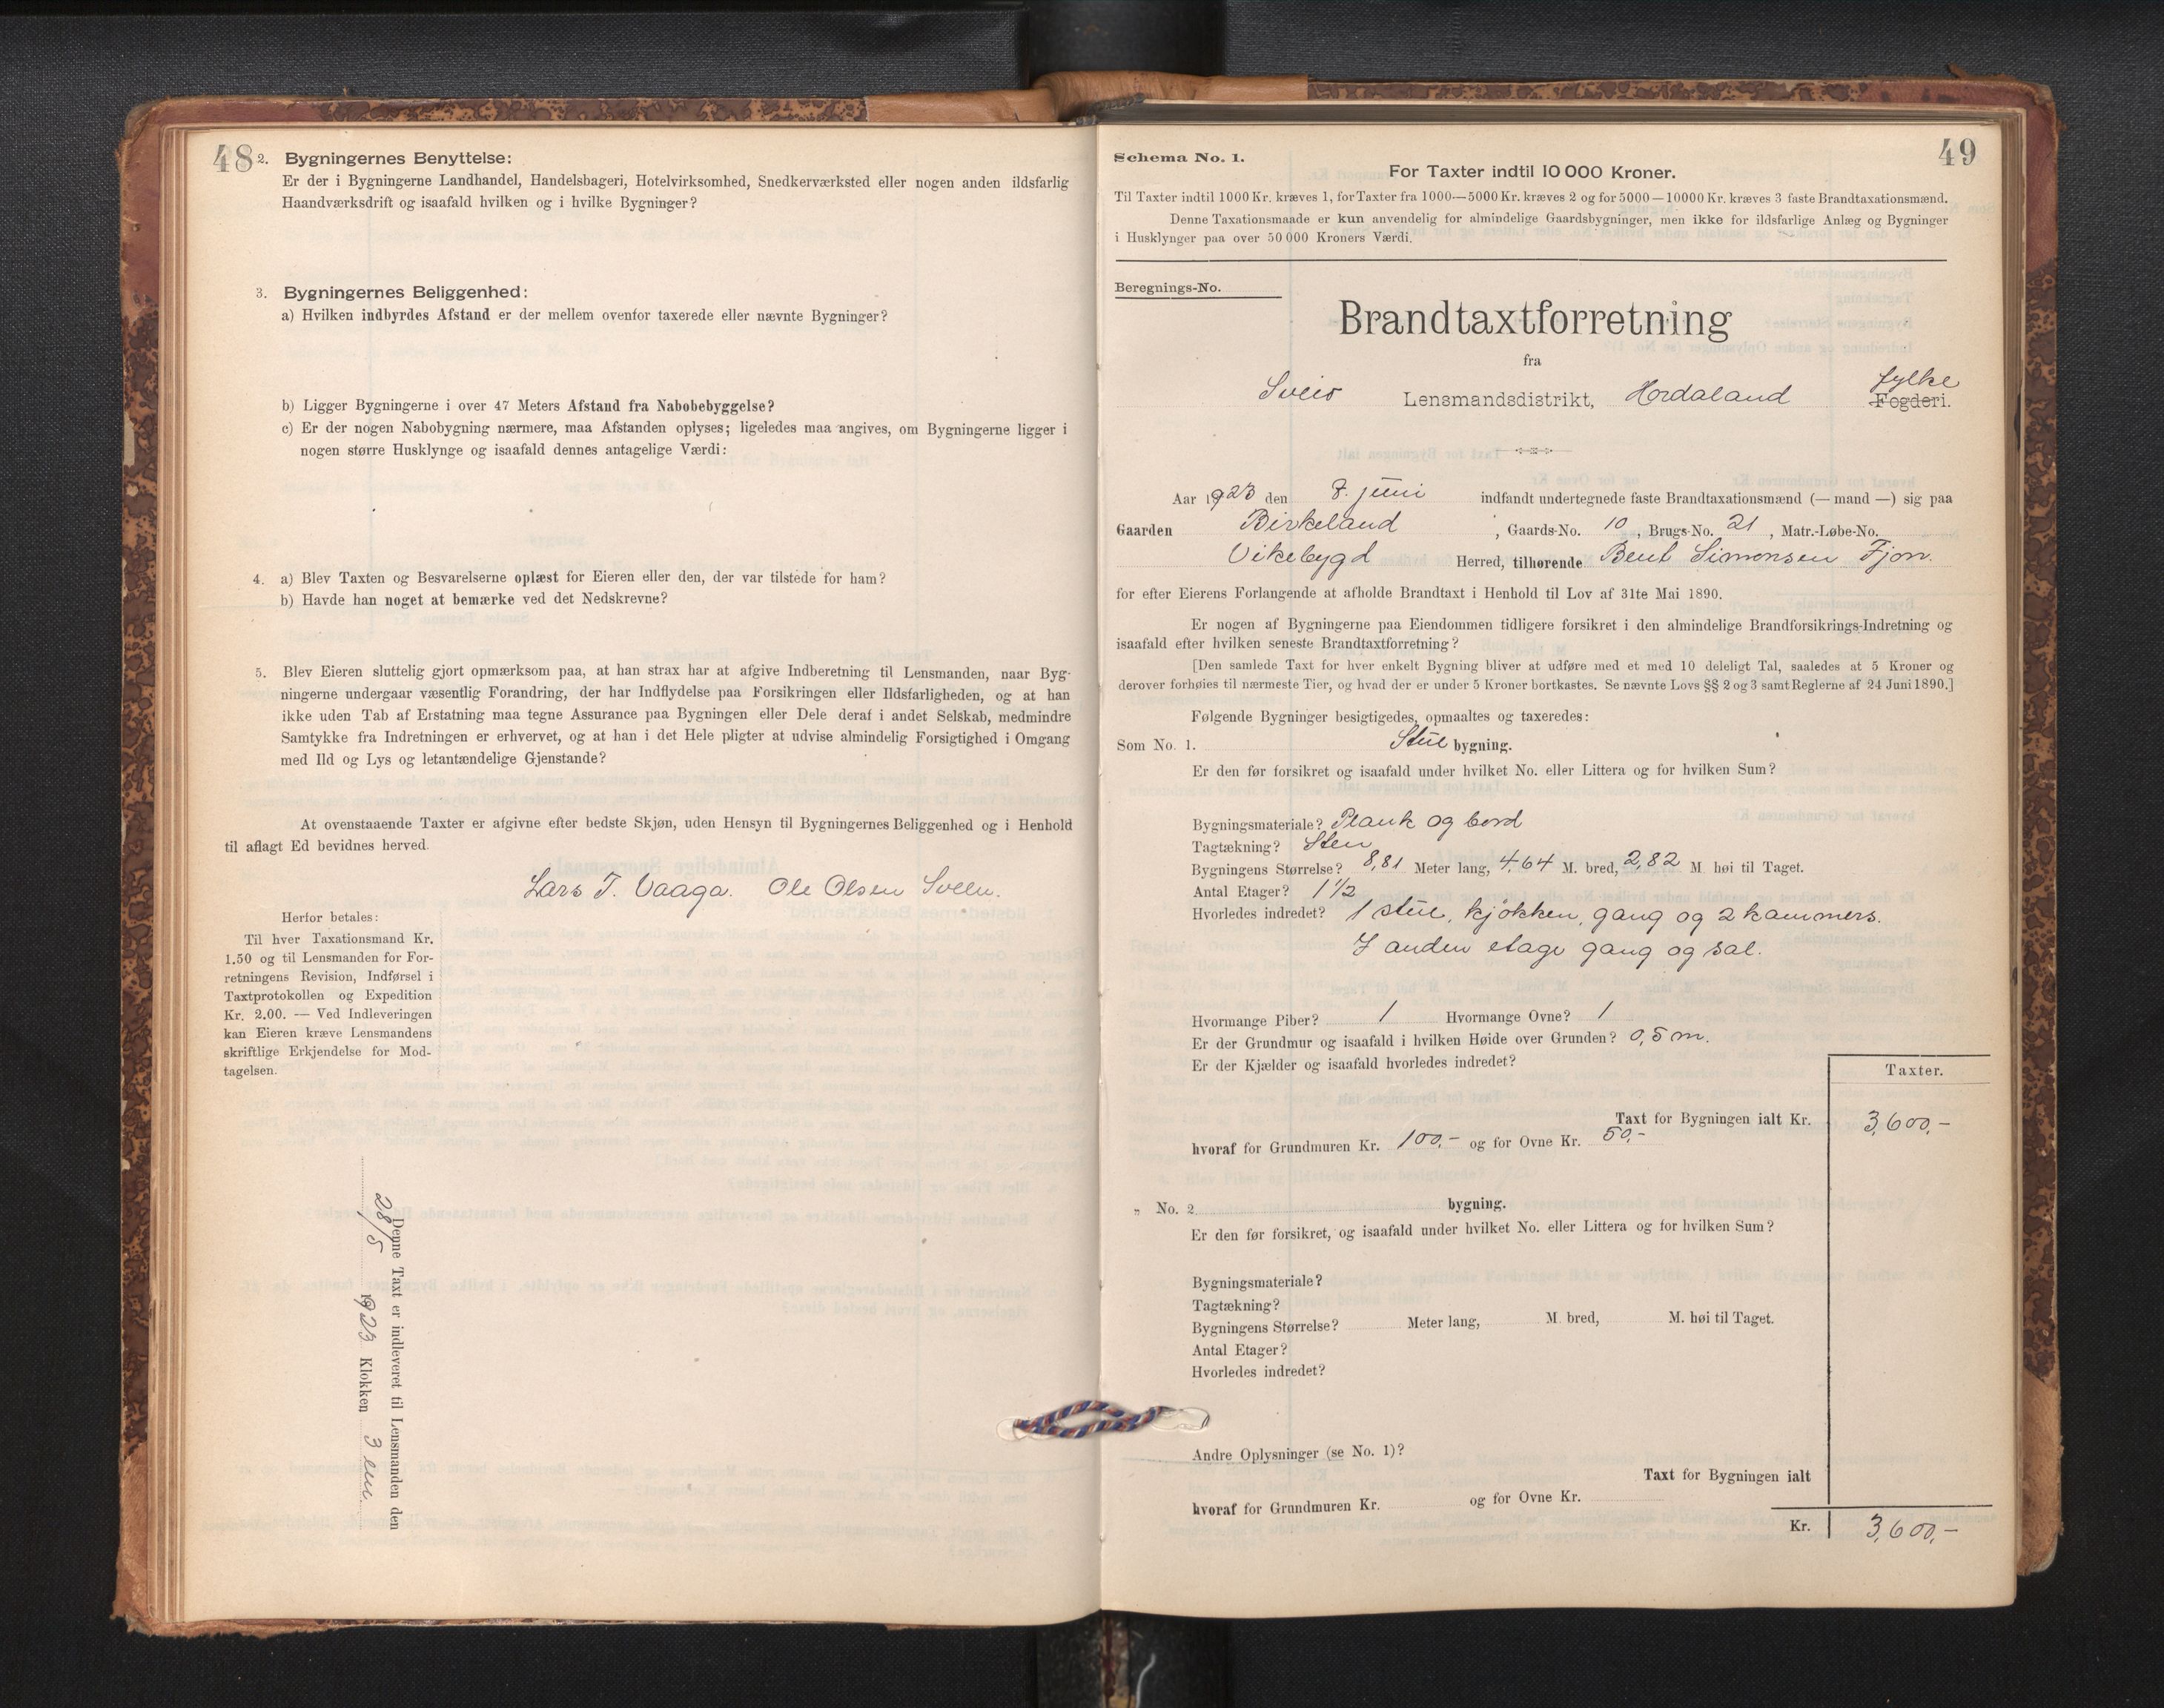 48
2. Bygningernes Benyttelse:
Er der i Bygningerne Landhandel, Handelsbageri, Hotelvirksomhed, Snedkerværksted eller nogen anden ildsfarlig
Haandværksdrift og isaafald hvilken og i hvilke Bygninger?
3. Bygningernes Beliggenhed:
a) Hvilken indbyrdes Afstand er der mellem ovenfor taxerede eller nævnte Bygninger?
b) Ligger Bygningerne i over 47 Meters Afstand fra Nabobebyggelse?
c) Er der nogen Nabobygning nærmere, maa Afstanden oplyses; ligeledes maa angives, om Bygningerne ligger i
nogen større Husklynge og isaafald dennes antagelige Værdi:
4. a) Blev Taxten og Besvarelserne oplæst for Eieren eller den, der var tilstede for ham?
b) Havde han noget at bemærke ved det Nedskrevne?
5. Blev Eieren sluttelig gjort opmærksom paa, at han strax har at afgive Indberetning til Lensmanden, naar Byg-
ningerne undergaar væsentlig Forandring, der har Indflydelse paa Forsikringen eller Ildsfarligheden, og at han
ikke uden Tab af Erstatning maa tegne Assurance paa Bygningen eller Dele deraf i andet Selskab, medmindre
Samtykke fra Indretningen er erhvervet, og at han i det Hele pligter at udvise almindelig Forsigtighed i Omgang
med Ild og Lys og letantændelige Gjenstande?
At ovenstaaende Taxter er afgivne efter bedste Skjøn, uden Hensyn til Bygningernes Beliggenhed og i Henhold
til aflagt Ed bevidnes herved.
Lars T. Vaaga. Ole Olsen Sveen.
Herfor betales:
Til hver Taxationsmand Kr.
1.50 og til Lensmanden for For-
retningens Revision, Indførsel i
Taxtprotokollen og Expedition
Kr. 2.00. — Ved Indleveringen
kan Eieren kræve Lensmandens
skriftlige Erkjendelse for Mod-
tagelsen.
Denne Taxt er indleveret til Lensmanden den
28/5 1923 Klokken 3 em.
49
Schema No. 1.
For Taxter indtil 10 000 Kroner.
Til Taxter indtil 1000 Kr. kræves 1, for Taxter fra 1000—5000 Kr. kræves 2 og for 5000—10000 Kr. kræves 3 faste Brandtaxationsmænd.
Denne Taxationsmaade er kun anvendelig for almindelige Gaardsbygninger, men ikke for ildsfarlige Anlæg og Bygninger
i Husklynger paa over 50 000 Kroners Værdi.
Beregnings-No.
Brandtaxtforretning
fra
Sveio Lensmandsdistrikt, Hordaland fylke Fogderi.
Aar 1923 den 7. juni indfandt undertegnede faste Brandtaxationsmænd (— mand —) sig paa
Gaarden Birkeland, Gaards-No. 10, Brugs-No. 21, Matr.-Løbe-No.
Vikebygd Herred, tilhørende Bent Simonsen Fjon.
for efter Eierens Forlangende at afholde Brandtaxt i Henhold til Lov af 31te Mai 1890.
Er nogen af Bygningerne paa Eiendommen tidligere forsikret i den almindelige Brandforsikrings-Indretning og
isaafald efter hvilken seneste Brandtaxtforretning?
[Den samlede Taxt for hver enkelt Bygning bliver at udføre med et med 10 deleligt Tal, saaledes at 5 Kroner og
derover forhøies til nærmeste Tier, og hvad der er under 5 Kroner bortkastes. Se nævnte Lovs §§ 2 og 3 samt Reglerne af 24 Juni 1890.]
Følgende Bygninger besigtigedes, opmaaltes og taxeredes:
Som No. 1. Stue bygning.
Er den før forsikret og isaafald under hvilket No. eller Littera og for hvilken Sum?
Bygningsmateriale? Plank og bord
Tagtækning? Sten
Bygningens Størrelse? 8,81 Meter lang, 4,64 M. bred, 2,82 M høi til Taget.
Antal Etager? 1½
Hvorledes indredet? 1 stue, kjøkken, gang og 2 kammers.
I anden etage gang og sal.
Hvormange Piber? 1 Hvormange Ovne? 1
Er der Grundmur og isaafald i hvilken Høide over Grunden? 0,5 m.
Er der Kjælder og isaafald hvorledes indredet?
Taxter.
Taxt for Bygningen ialt Kr. 3,600,-
hvoraf for Grundmuren Kr. 100,- og for Ovne Kr. 50,-
„ No. 2 bygning.
Er den før forsikret, og isaafald under hvilket No. eller Littera og for hvilken Sum?
Bygningsmateriale?
Tagtækning?
Bygningens Størrelse? Meter lang, M bred, M. høi til Taget.
Antal Etager?
Hvorledes indredet?
Andre Oplysninger (se No. 1)?
Taxt for Bygningen ialt
hvoraf for Grundmuren Kr. og for Ovne Kr.
Kr. 3,600,-